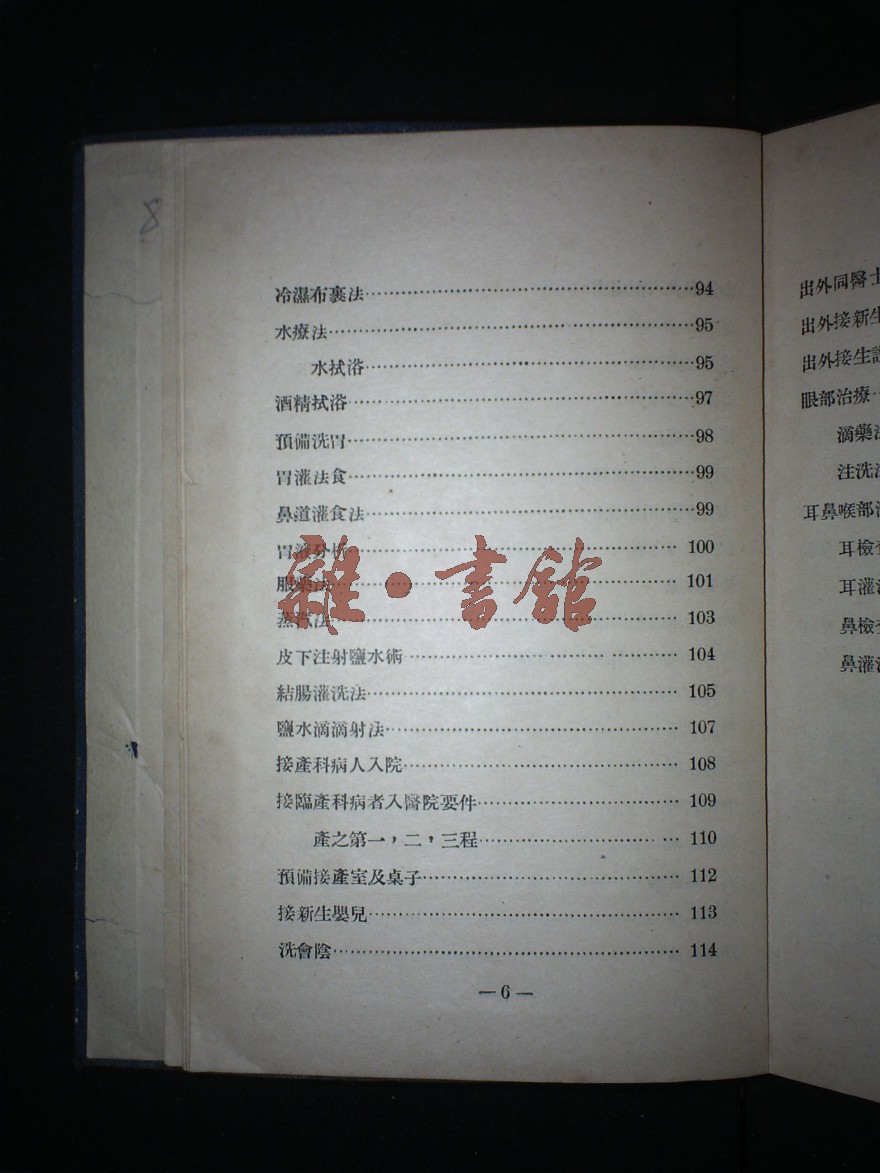 8
冷濕布裹法……94
水療法……95
水拭浴……95
酒精拭浴……97
預備洗胃……98
胃灌法食……99
鼻道灌食法……99
胃液分析……100
服藥法……101
蒸汽法……103
皮下注射鹽水術……104
結腸灌洗法……105
鹽水滴滴射法……107
接產科病人入院……108
接臨產科病者入醫院要件……109
產之第一，二，三程……110
預備接產室及桌子……112
接新生嬰兒……113
洗會陰……114
—6—
雜·書館
出外同醫士
出外接新生
出外接生
眼部治療
滴藥
注洗
耳鼻喉部
耳檢
耳灌
鼻檢
鼻灌